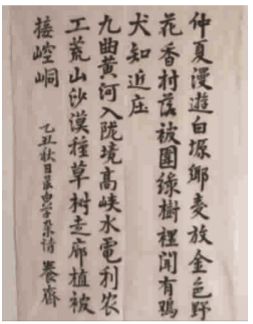 仲夏漫遊白塬鄉麦放金色野
花香村落被圍綠樹裡聞有鸡
犬知近庄
九曲黄河入陇境高峡水電利农
工荒山沙漠種草树走廊植被
接崆峒
乙丑秋日录 杂诗 養齋